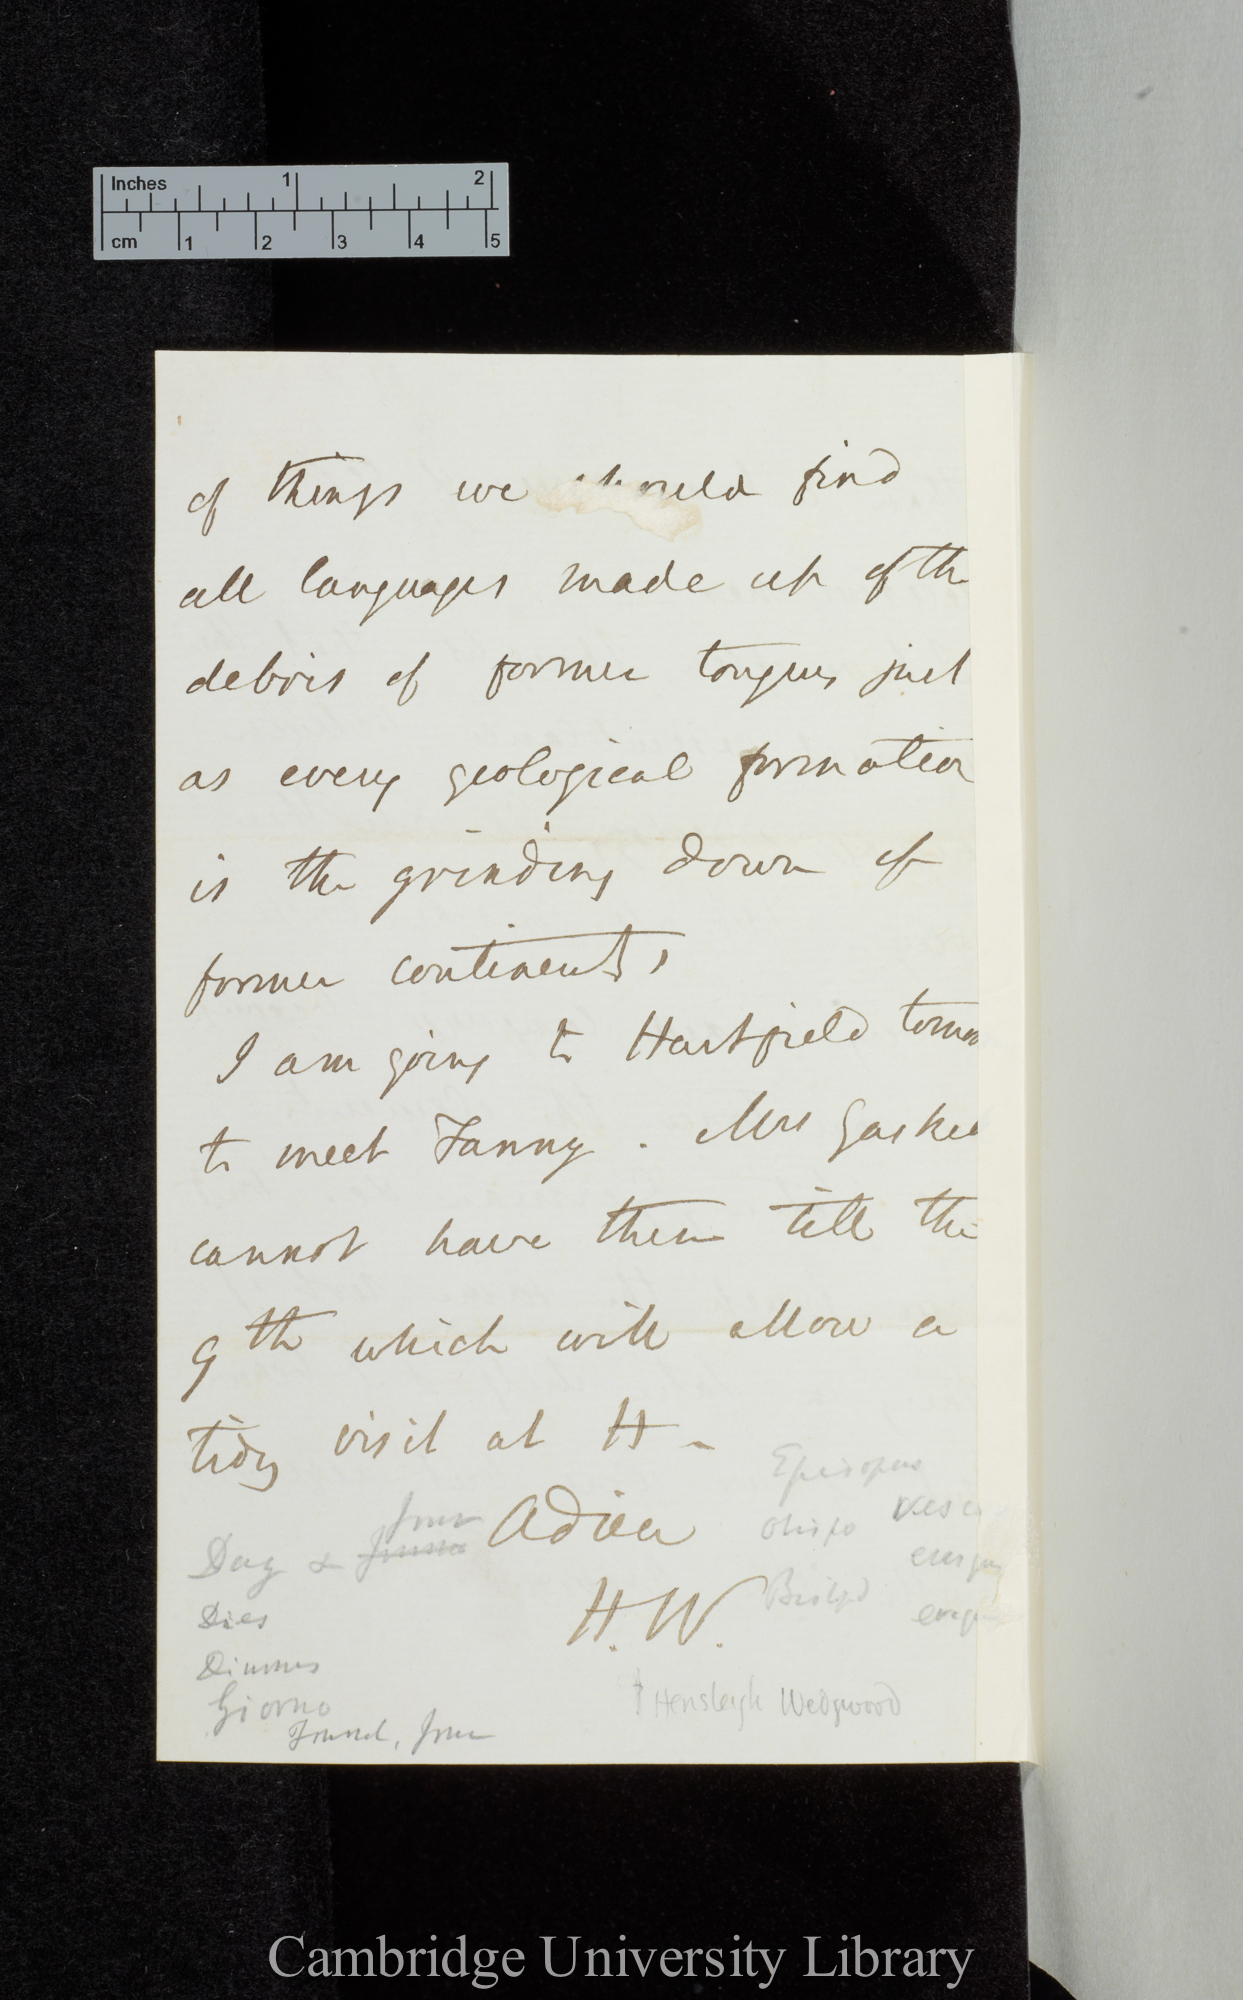 Inches 1 2
cm 1 2 3 4 5
of things we should find
all languages made up of the
debris of former tongues just
as every geological formation
is the grinding down of
former continents,
I am going to Hartfield
to meet Fanny. Mrs
cannot have them till the
9th which will allow a
tidy visit at H -
Adieu
H. W.
Day & Jour
Dies
Diurnus
Giorno
Journal, Jour
Episcopus
obispo
Bishop
Hensleigh Wedgwood
Cambridge University Library